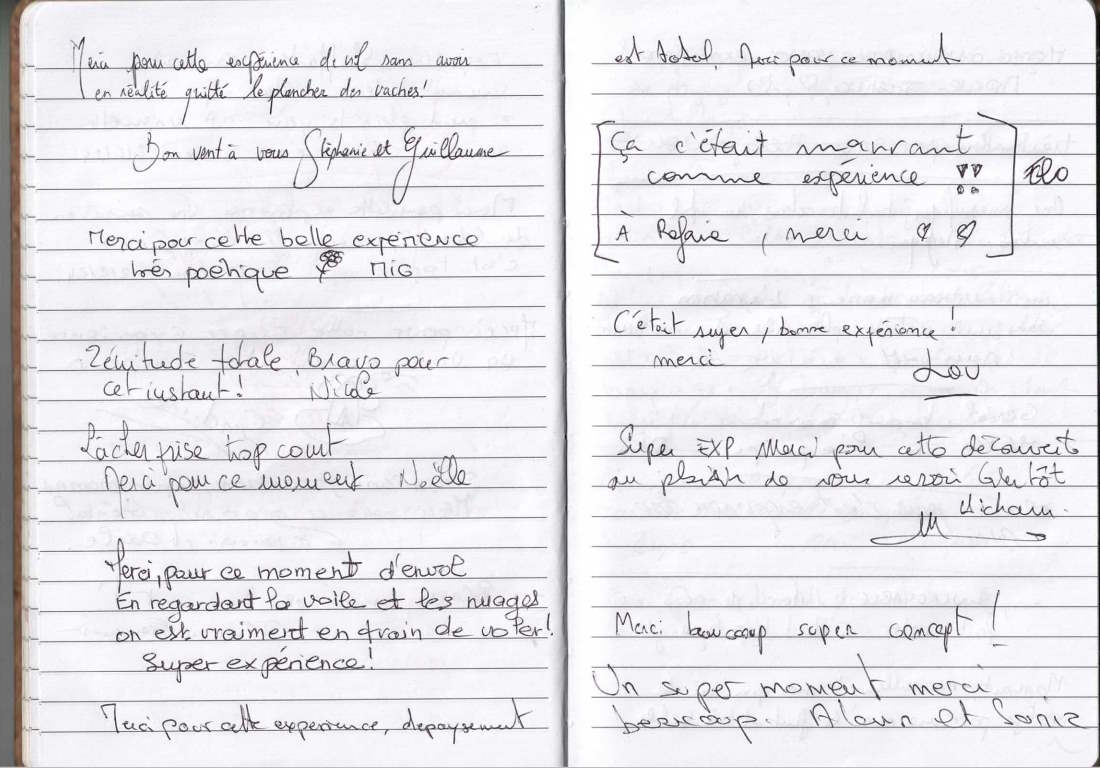 Merci pour cette expérience de vol sans avoir
en réalité quitté le plancher des vaches!
Bon vent à vous Stéphanie et Guillaume
Merci pour cette belle expérience
très poétique MIG
Zénitude totale, Bravo pour
cet instant! Nicole
Lâcher prise trop court
Merci pour ce moment Noëlle
Merci, pour ce moment d'envol
En regardant la voile et les nuages
on est vraiment en train de voler!
Super expérience!
Merci pour cette experience, depaysement
est total. Merci pour ce moment
Ça c'était marrant
comme expérience !! Flo
À Refaire, merci
C'était super, bonne expérience!
merci Lou
Super EXP Merci pour cette découverte
au plaisir de vous revoir bientôt
Hicham.
Merci beaucoup super concept!
Un super moment merci
beaucoup. Alain et Sonia